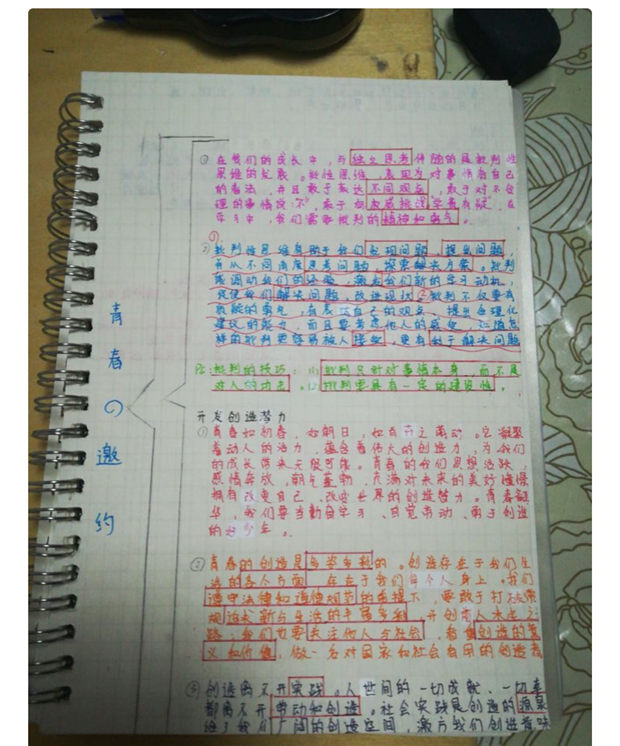 青春の邀约
① 在我们的成长中,与独立思考伴随的是批判性
思维的发展。批性思维,表现为对事情有自己
的看法,并且敢于表达不同观点,敢于对不合
理的事情说"不",敢于向权威挑战
学习中,我们需要批判的精神和勇气。
①
② 批判性思维有助于我们发现问题,提出问题
并从不同角度思考问题,探索解决方案。批判
能调动我们的经验,激发我们新的学习动机,
促使我们解决问题,改进现状②批判不仅要有
质疑的勇气,有表达自己的观点、提出合理化
建议的能力,而且要考虑他人的感受,知道怎
样的批判更容易被人接受,更有利于解决问题
批判的技巧:⑴批判只针对事情本身,而不是
对人的攻击。⑵批判要具有一定的建设性。
开发创造潜力
① 青春如初春,如朝日,如百卉之萌动。它凝聚
着动人的活力,蕴含着伟大的创造力,为我们
的成长带来无限可能。青春的我们思想活跃,
感情奔放,朝气蓬勃,充满对未来的美好憧憬
拥有改变自己、改变世界的创造潜力。青春韶
华,我们要当勤奋学习、自觉劳动、勇于创造
的好少年。
② 青春的创造是多姿多彩的。创造存在于我们生
活的各个方面,存在于我们每个人身上。我们
遵守法律和道德规范的前提下,要敢于打破常
规追求新与生活的丰富多彩,开创前人未走之
路;我们也要关注他人与社会,看重创造的意
义和价值,做一名对国家和社会有用的创造者
③ 创造离不开实践。人世间的一切成就、一切幸
都离不开劳动和创造。社会实践是创造的源泉
给了我们广阔的创造空间,激方我们创造意味